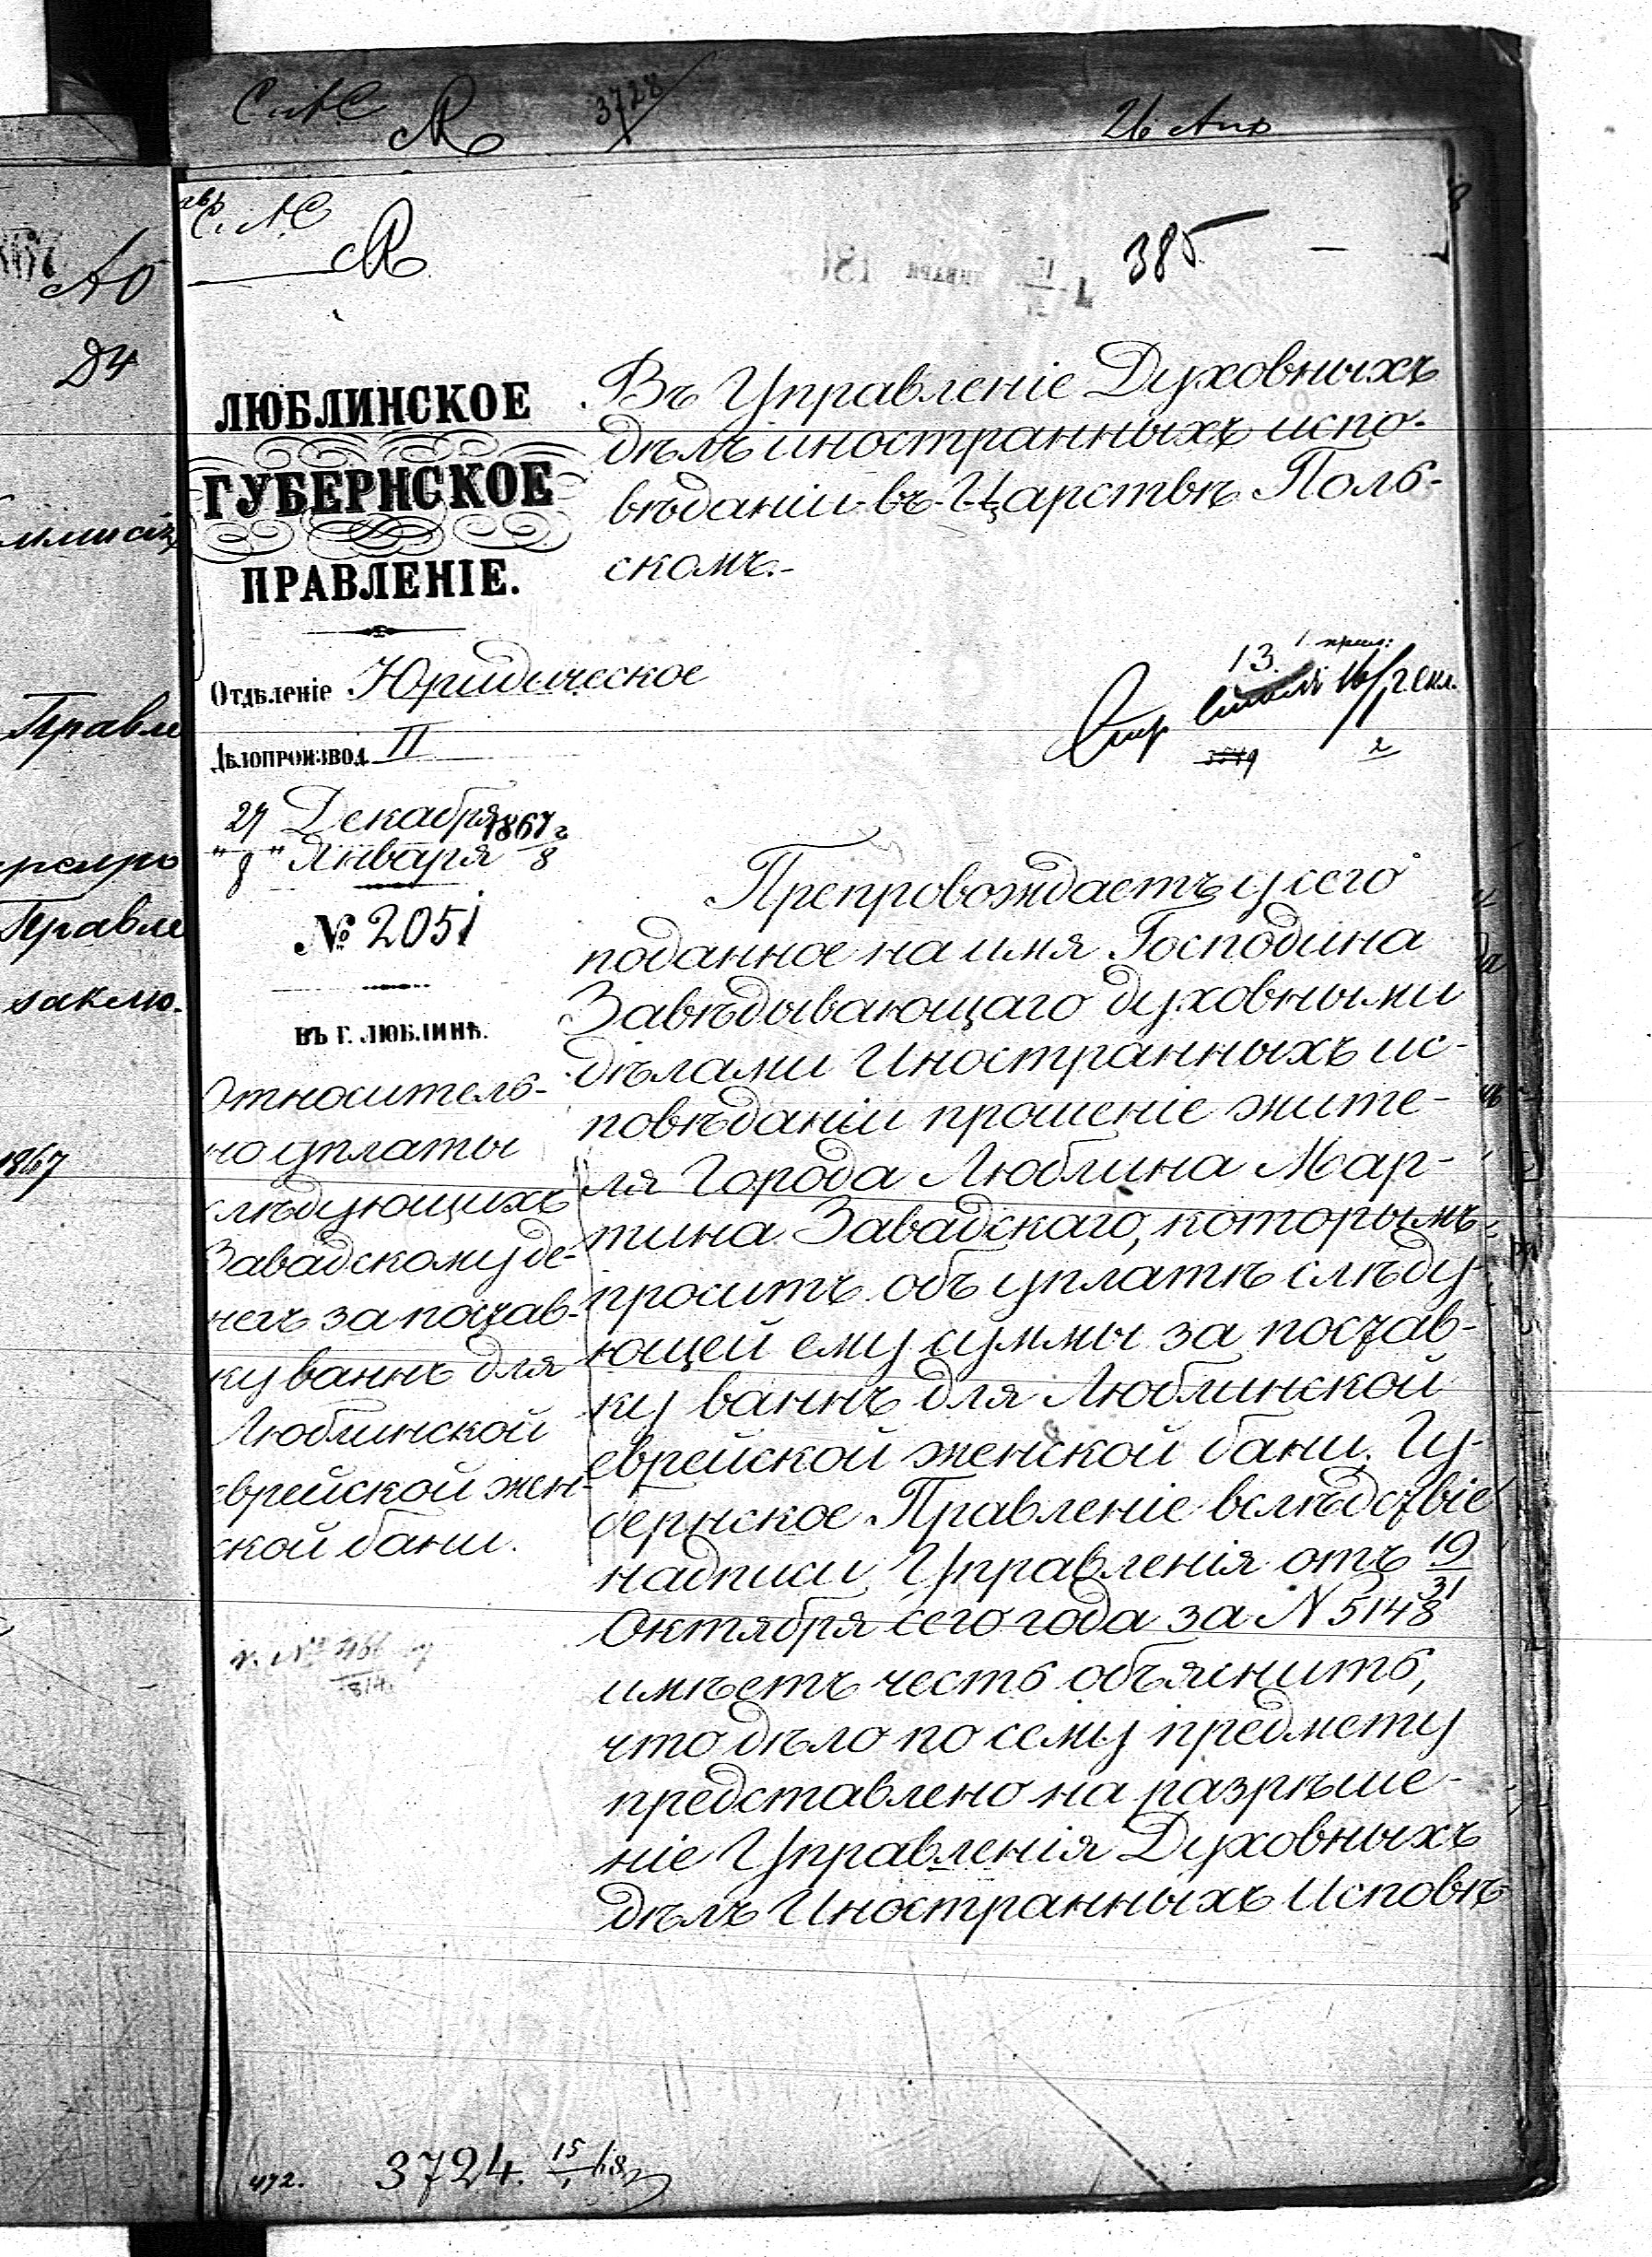 3728
26 Апр
385
ЛЮБЛИНСКОЕ
ГУБЕРНСКОЕ
ПРАВЛЕНІЕ.
Отдѣленіе Юридическое
Дѣлопроизвод. II
27 Декабря 1867 г
8 Января 8
№ 2051
ВЪ Г. ЛЮБЛИНѢ.
Относитель-
но уплаты
слѣдующихъ
Завадскому де-
негъ за постав-
ку ваннъ для
Люблинской
еврейской жен-
ской бани.
Въ Управленіе Духовныхъ
дѣлъ иностранныхъ испо-
вѣданій въ Царствѣ Поль-
скомъ.-
13.
Препровождаетъ у сего
поданное на имя Господина
Завѣдывающаго духовными
дѣлами Иностранныхъ ис-
повѣданій прошеніе жите-
ля Города Люблина Мар-
тина Завадскаго, которымъ
проситъ объ уплатѣ слѣду-
ющей ему суммы за постав-
ку ваннъ для Люблинской
еврейской женской бани, Гу-
бернское Правленіе вслѣдствіе
надписи Управленія отъ 19/31
Октября сего года за N 5148
имѣетъ честь объяснить,
что дѣло по сему предмету
представлено на разрѣше-
ніе Управленія Духовныхъ
дѣлъ Иностранныхъ Исповѣ
472. 3724. 15/1 68
Правле
Правле
заклю.
1867